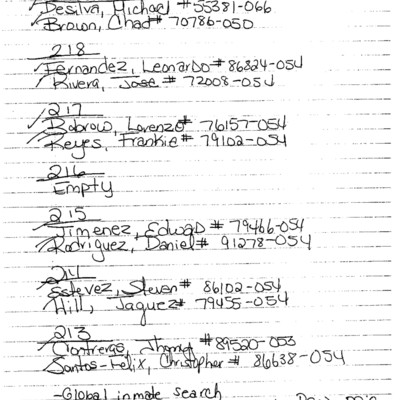 Desilva, Michael # 55381-066
Brown, Chad # 70786-050
218
Fernandez, Leonardo # 86824-054
Rivera, Jose # 72008-054
217
Bobrow, Lorenzo # 76157-054
Keyes, Frankie # 79102-054
216
Empty
215
Jimenez, Edward # 79466-054
Rodriguez, Daniel # 91278-054
214
Estevez, Steven # 86102-054
Hill, Jaquez # 79455-054
213
Contreras, Jhonny # 89520-053
Santos-Felix, Christopher # 86638-054
-Global inmate search